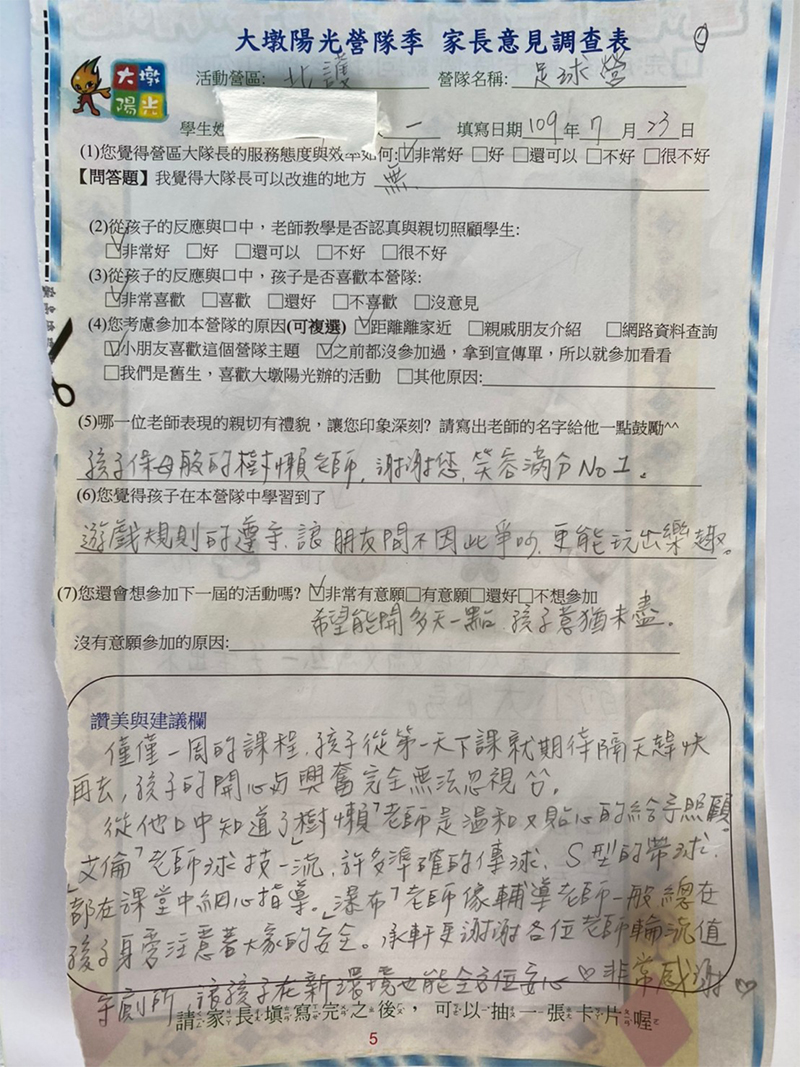 大墩陽光營隊季 家長意見調查表
大墩
陽光
活動營區: 北護 營隊名稱: 足球營
學生姓 一 填寫日期 109 年 7 月 23 日
(1)您覺得營區大隊長的服務態度與效率如何:☑非常好 □好 □還可以 □不好 □很不好
【問答題】我覺得大隊長可以改進的地方 無
(2)從孩子的反應與口中，老師教學是否認真與親切照顧學生:
☑非常好 □好 □還可以 □不好 □很不好
(3)從孩子的反應與口中，孩子是否喜歡本營隊:
☑非常喜歡 □喜歡 □還好 □不喜歡 □沒意見
(4)您考慮參加本營隊的原因(可複選) ☑距離離家近 □親戚朋友介紹 □網路資料查詢
☑小朋友喜歡這個營隊主題 ☑之前都沒參加過，拿到宣傳單，所以就參加看看
□我們是舊生，喜歡大墩陽光辦的活動 □其他原因:
(5)哪一位老師表現的親切有禮貌，讓您印象深刻? 請寫出老師的名字給他一點鼓勵^^
孩子保母般的樹懶老師, 謝謝您, 笑容滿分 No 1。
(6)您覺得孩子在本營隊中學習到了
遊戲規則的遵守, 讓朋友間不因此爭吵, 更能玩出樂趣。
(7)您還會想參加下一屆的活動嗎? ☑非常有意願□有意願□還好□不想參加
希望能開多天一點, 孩子意猶未盡。
沒有意願參加的原因:
讚美與建議欄
僅僅一周的課程, 孩子從第一天下課就期待隔天趕快
再去, 孩子的開心與興奮完全無法忽視
從他口中知道了「樹懶」老師是溫和又貼心的給予照顧。
「艾倫」老師球技一流, 許多準確的傳球、S型的帶球,
都在課堂中細心指導。「瀑布」老師像輔導老師一般總在
孩子身旁注意著大家的安全。承軒更謝謝各位老師輪流值
守廁所, 讓孩子在新環境也能全方位安心 ♡ 非常感謝 ♡
請家長填寫完之後，可以抽一張卡片喔
5